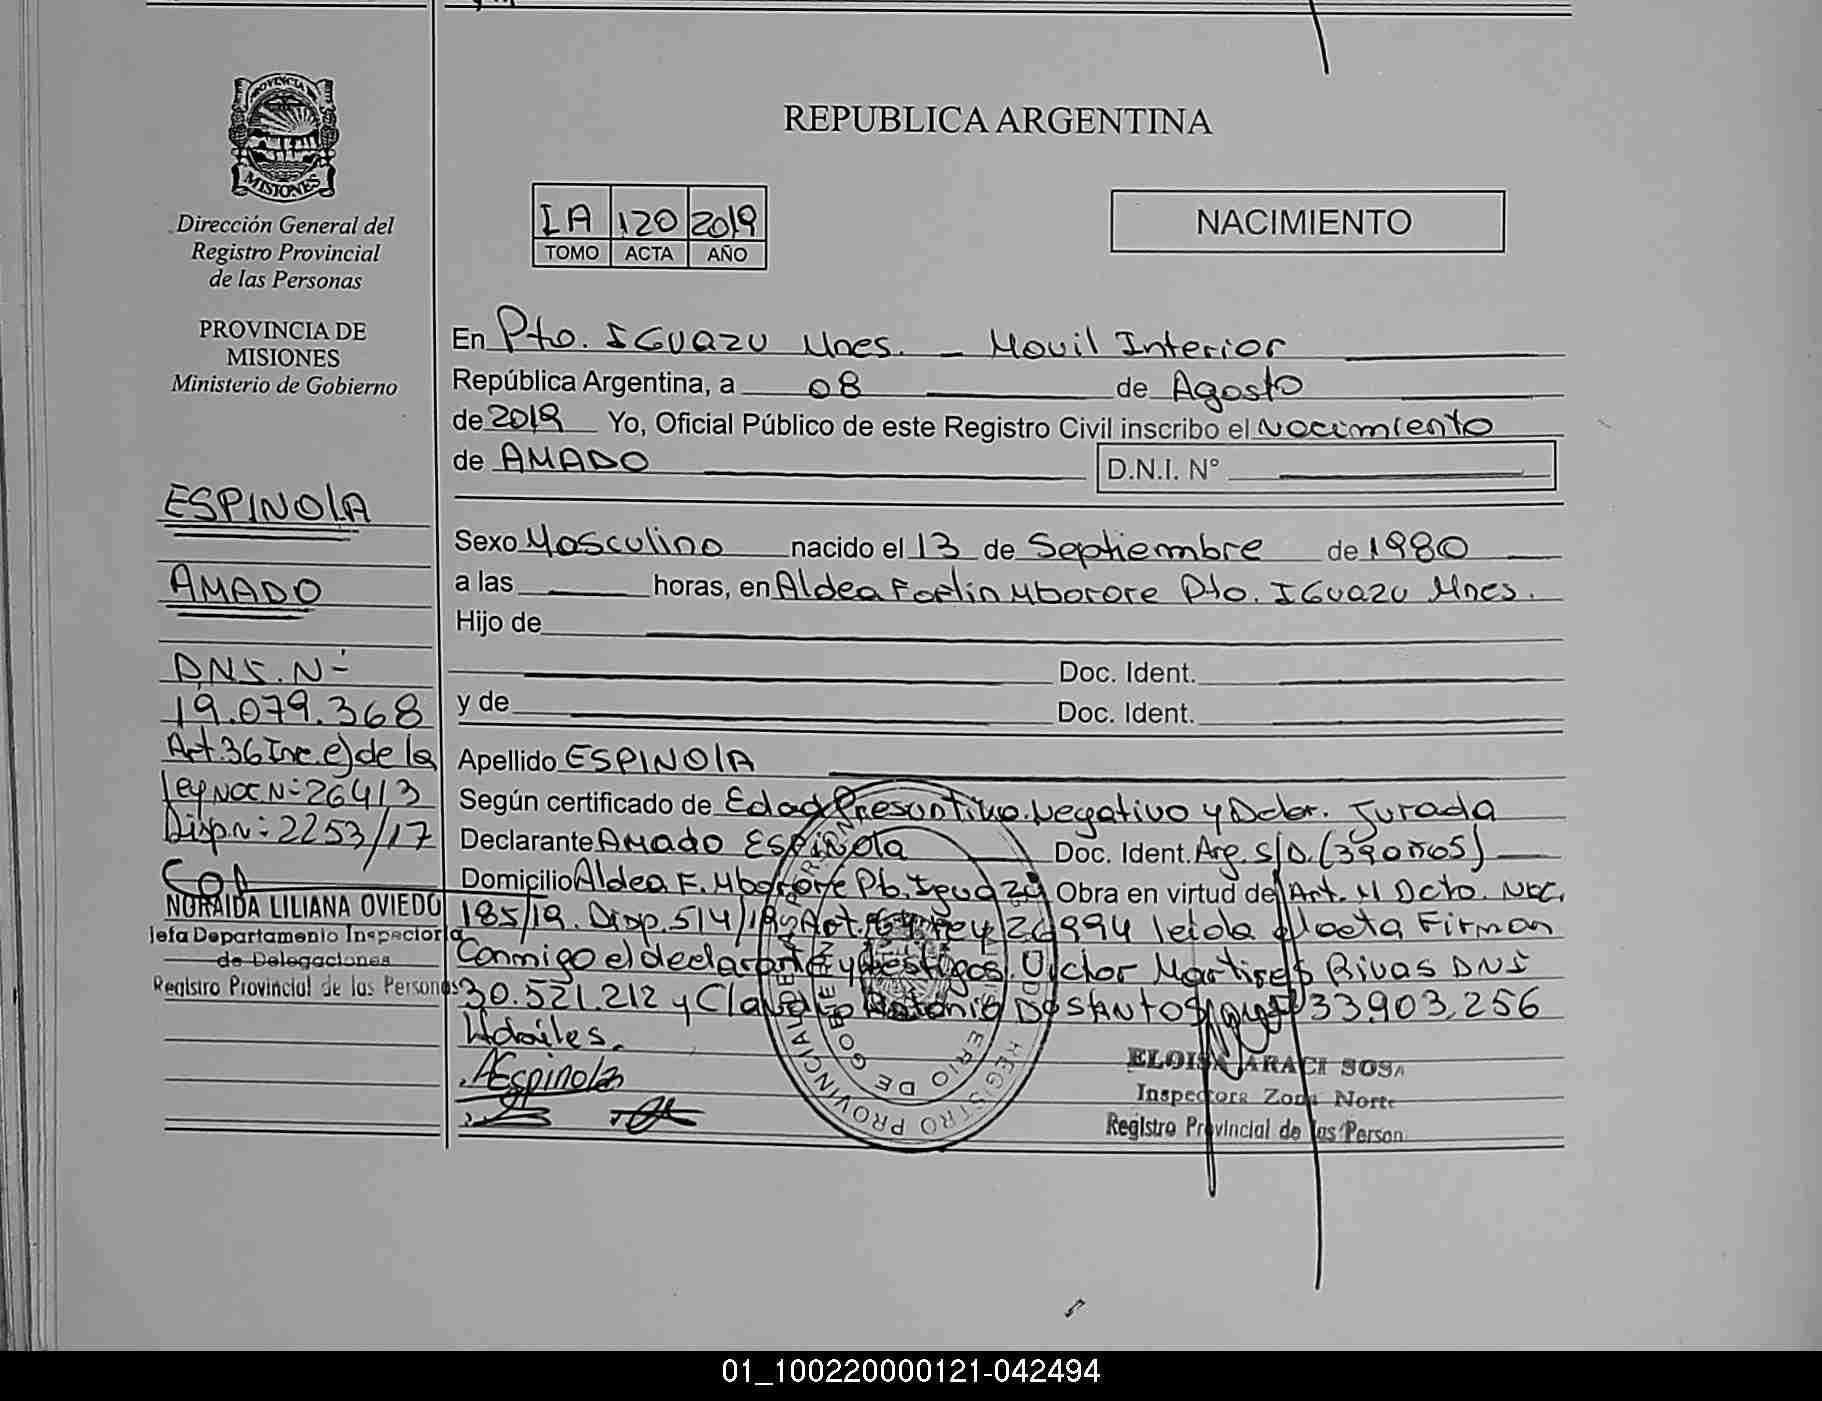 PROVINCIA
MISIONES
Dirección General del
Registro Provincial
de las Personas
PROVINCIA DE
MISIONES
Ministerio de Gobierno
ESPINOLA
AMADO
DNI. Nº
19.079.368
Art.36 Inc.e) de la
Ley NAC Nº 26413
Disp.Nº 2253/17
NORAIDA LILIANA OVIEDO
Jefa Departamento Inspectoria
de Delegaciones
Registro Provincial de las Personas
REPUBLICA ARGENTINA
IA 120 2019
TOMO ACTA AÑO
NACIMIENTO
En Pto. IGUAZU Mnes. - Movil Interior
República Argentina, a 08 de Agosto
de 2019 Yo, Oficial Público de este Registro Civil inscribo el Nacimiento
de AMADO D.N.I. N°
Sexo Masculino nacido el 13 de Septiembre de 1980
a las horas, en Aldea Fortin Mborore Pto. IGUAZU Mnes.
Hijo de
Doc. Ident.
y de Doc. Ident.
Apellido ESPINOLA
Según certificado de Edad Presuntiva. Negativo y Dclar. Jurada
Declarante AMADO ESPINOLA Doc. Ident. Arg. S/D. (39 años)
Domicilio Aldea F. Mborore Pto. Iguazú Obra en virtud del Art. 11 Dcto. NAC.
185/19. Disp. 514/19 Art. Ley 26994 leida el acta Firman
Conmigo el declarante y testigos. Victor Martires Rivas DNI
30.521.212 y Claudio Antonio DOSSANTOS 33.903.256
Hábiles.
AEspinola
REGISTRO PROVINCIAL DE LAS PERSONAS
MINISTERIO DE GOBIERNO
ELOISA ARACI SOSA
Inspectora Zona Norte
Registro Provincial de las Person
01_100220000121-042494